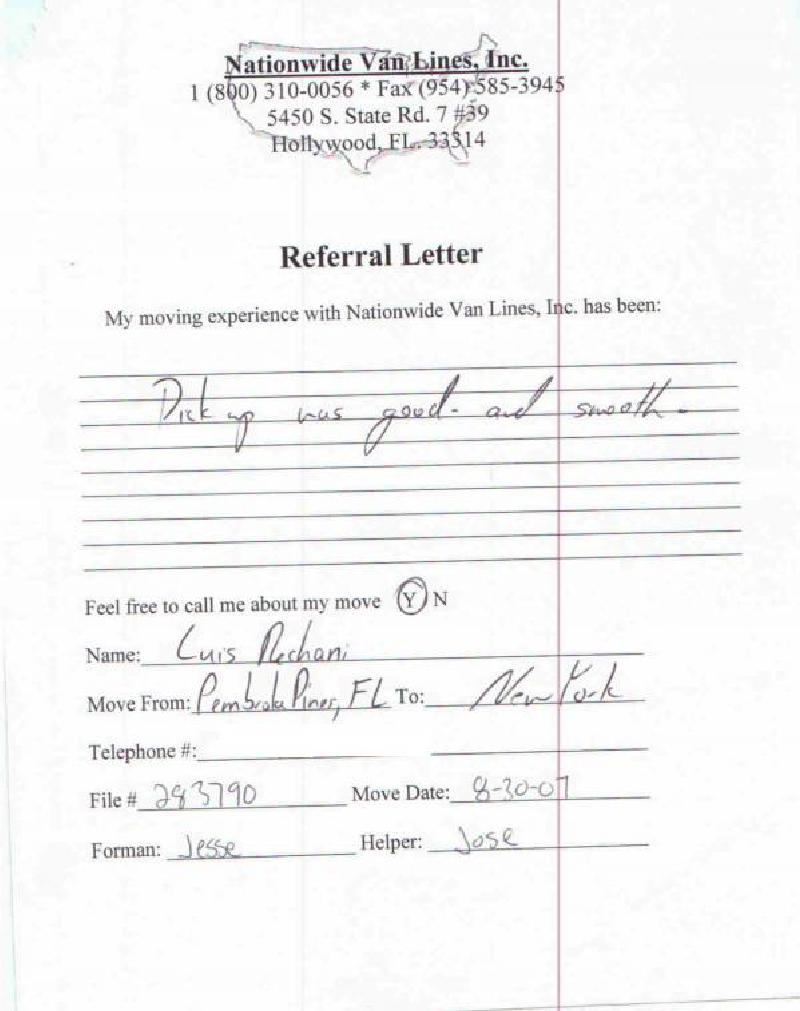 Nationwide Van Lines, Inc.
1 (800) 310-0056 * Fax (954) 585-3945
5450 S. State Rd. 7 #39
Hollywood, FL. 33314
Referral Letter
My moving experience with Nationwide Van Lines, Inc. has been:
Pick up was good. and smooth.
Feel free to call me about my move Y N
Name: Luis
Move From: Pembroke Pines, FL To: New York
Telephone #:
File # 283790 Move Date: 8-30-07
Forman: Jesse Helper: Jose